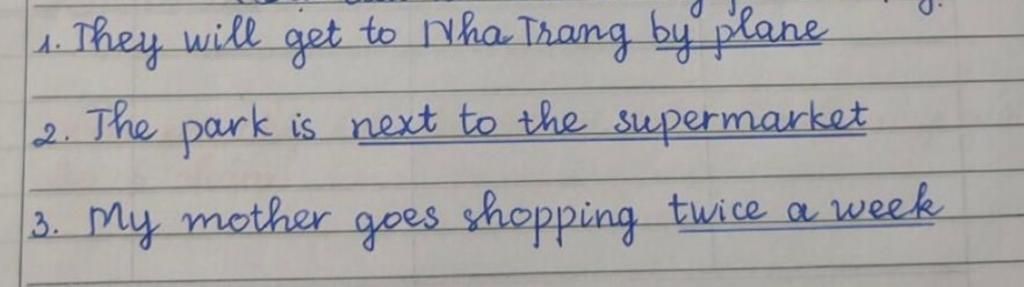 1. They will get to Nha Trang by plane
2. The park is next to the supermarket
3. My mother goes shopping twice a week